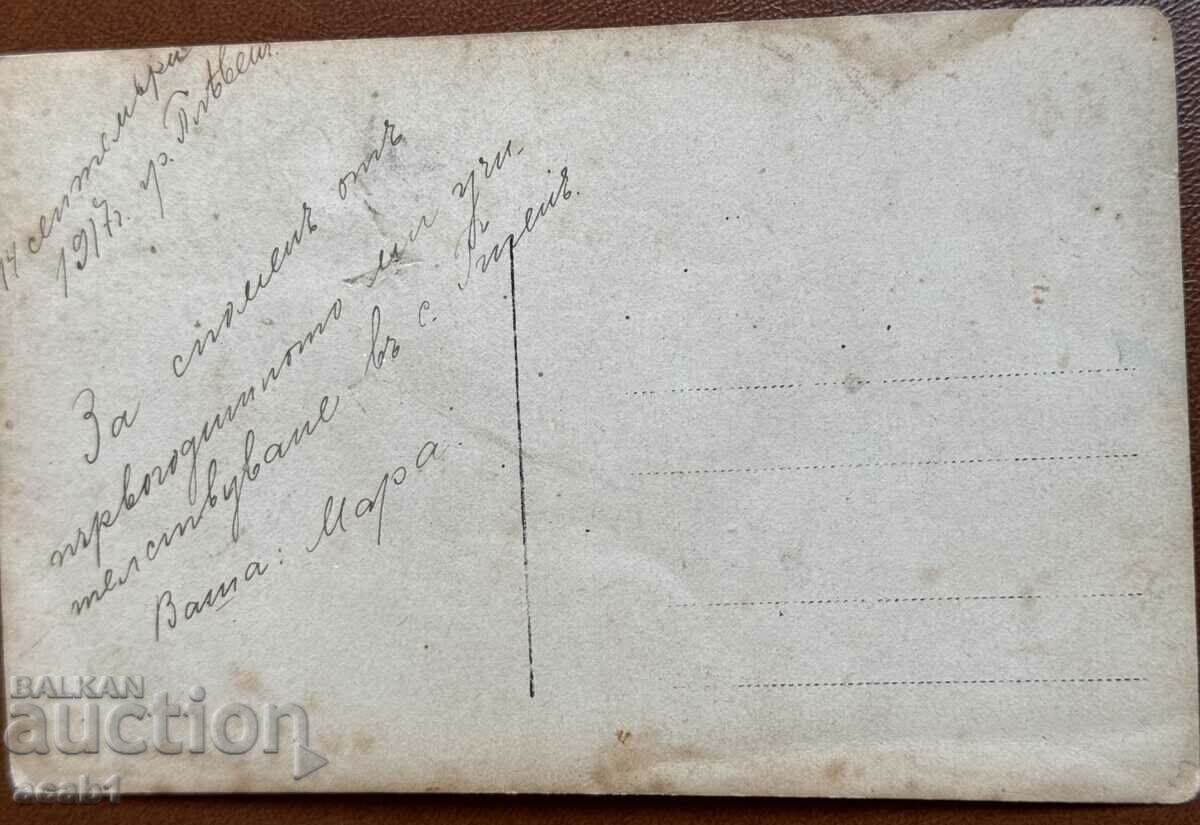 14 септемврий
1917г. гр. Плѣвенъ.
За споменъ отъ
първогодишното ми учи-
телствуване въ с.
Ваша: Мара.
BALKAN
auction
acab1